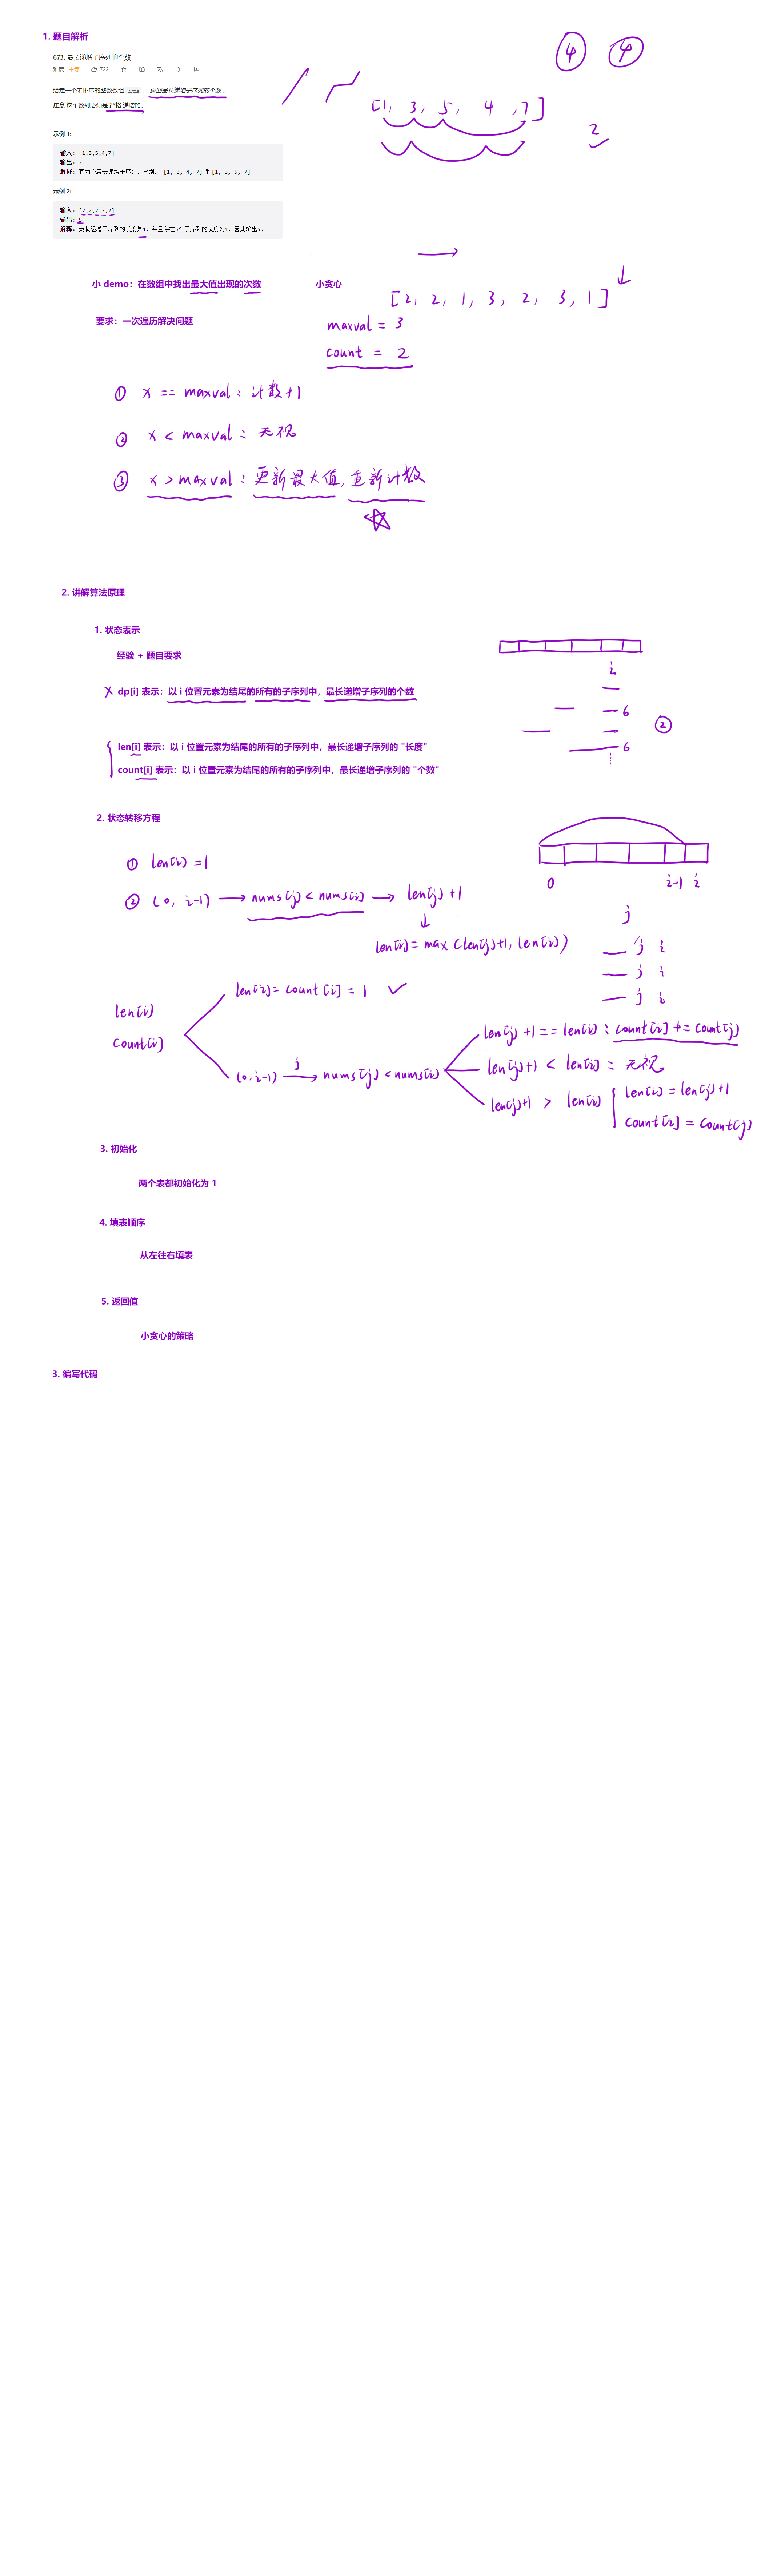 1. 题目解析
673. 最长递增子序列的个数
难度 中等 722
给定一个未排序的整数数组 nums ， 返回最长递增子序列的个数 。
注意 这个数列必须是 严格 递增的。
④ ④
[1, 3, 5, 4, 7]
2
示例 1:
输入: [1,3,5,4,7]
输出: 2
解释: 有两个最长递增子序列，分别是 [1, 3, 4, 7] 和[1, 3, 5, 7]。
示例 2:
输入: [2,2,2,2,2]
输出: 5
解释: 最长递增子序列的长度是1，并且存在5个子序列的长度为1，因此输出5。
小 demo：在数组中找出最大值出现的次数 小贪心
[2, 2, 1, 3, 2, 3, 1]
要求：一次遍历解决问题
maxval = 3
count = 2
① x == maxval : 计数+1
② x < maxval : 无视
③ x > maxval : 更新最大值, 重新计数
2. 讲解算法原理
1. 状态表示
经验 + 题目要求
i
X dp[i] 表示：以 i 位置元素为结尾的所有的子序列中，最长递增子序列的个数
6
②
6
len[i] 表示：以 i 位置元素为结尾的所有的子序列中，最长递增子序列的 "长度"
count[i] 表示：以 i 位置元素为结尾的所有的子序列中，最长递增子序列的 "个数"
2. 状态转移方程
① len[i] = 1
0 i-1 i
② (0, i-1) → nums[j] < nums[i] → len[j] + 1
j
len[i] = max(len[j]+1, len[i])
j i
j i
j i
len[i]
count[i]
len[i] = count[i] = 1
(0, i-1) j → nums[j] < nums[i]
len[j] + 1 == len[i] : count[i] += count[j]
len[j]+1 < len[i] : 无视
len[j]+1 > len[i] { len[i] = len[j]+1
count[i] = count[j]
3. 初始化
两个表都初始化为 1
4. 填表顺序
从左往右填表
5. 返回值
小贪心的策略
3. 编写代码